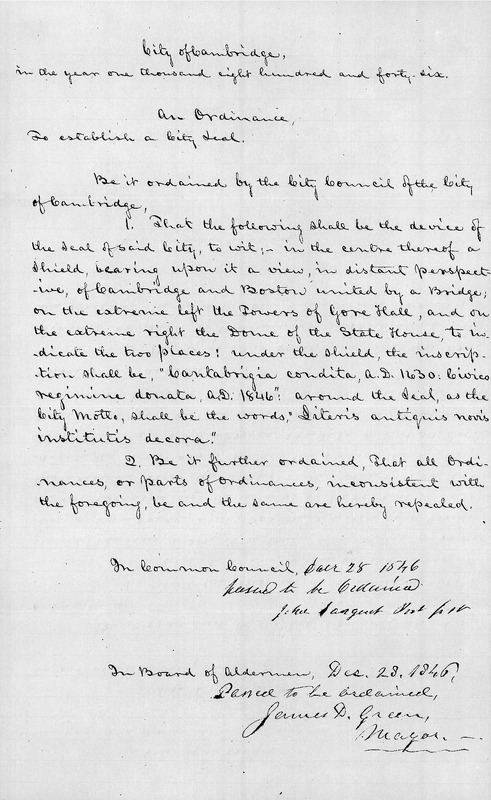 City of Cambridge,
in the year one thousand eight hundred and forty-six.
An Ordinance,
To establish a City Seal.
Be it ordained by the City Council of the City
of Cambridge,
1. That the following shall be the device of
the Seal of said City, to wit;- in the centre thereof a
Shield, bearing upon it a view, in distant perspect-
-ive, of Cambridge and Boston united by a Bridge;
on the extreme left the Towers of Gore Hall, and on
the extreme right the Dome of the State House, to in-
-dicate the two places: under the shield, the inscrip-
-tion shall be, "Cantabrigia condita, A.D. 1630: Civico
regimine donata, A.D. 1846": around the Seal, as the
City Motto, shall be the words, "Literis antiquis novis
institutis decora."
2. Be it further ordained, That all Ordi-
-nances, or parts of Ordinances, inconsistent with
the foregoing, be and the same are hereby repealed.
In Common Council, 28 1846
passed to be Ordained
John Sargent
In Board of Aldermen, Dec. 28. 1846,
Passed to be ordained,
James D. Green,
Mayor.